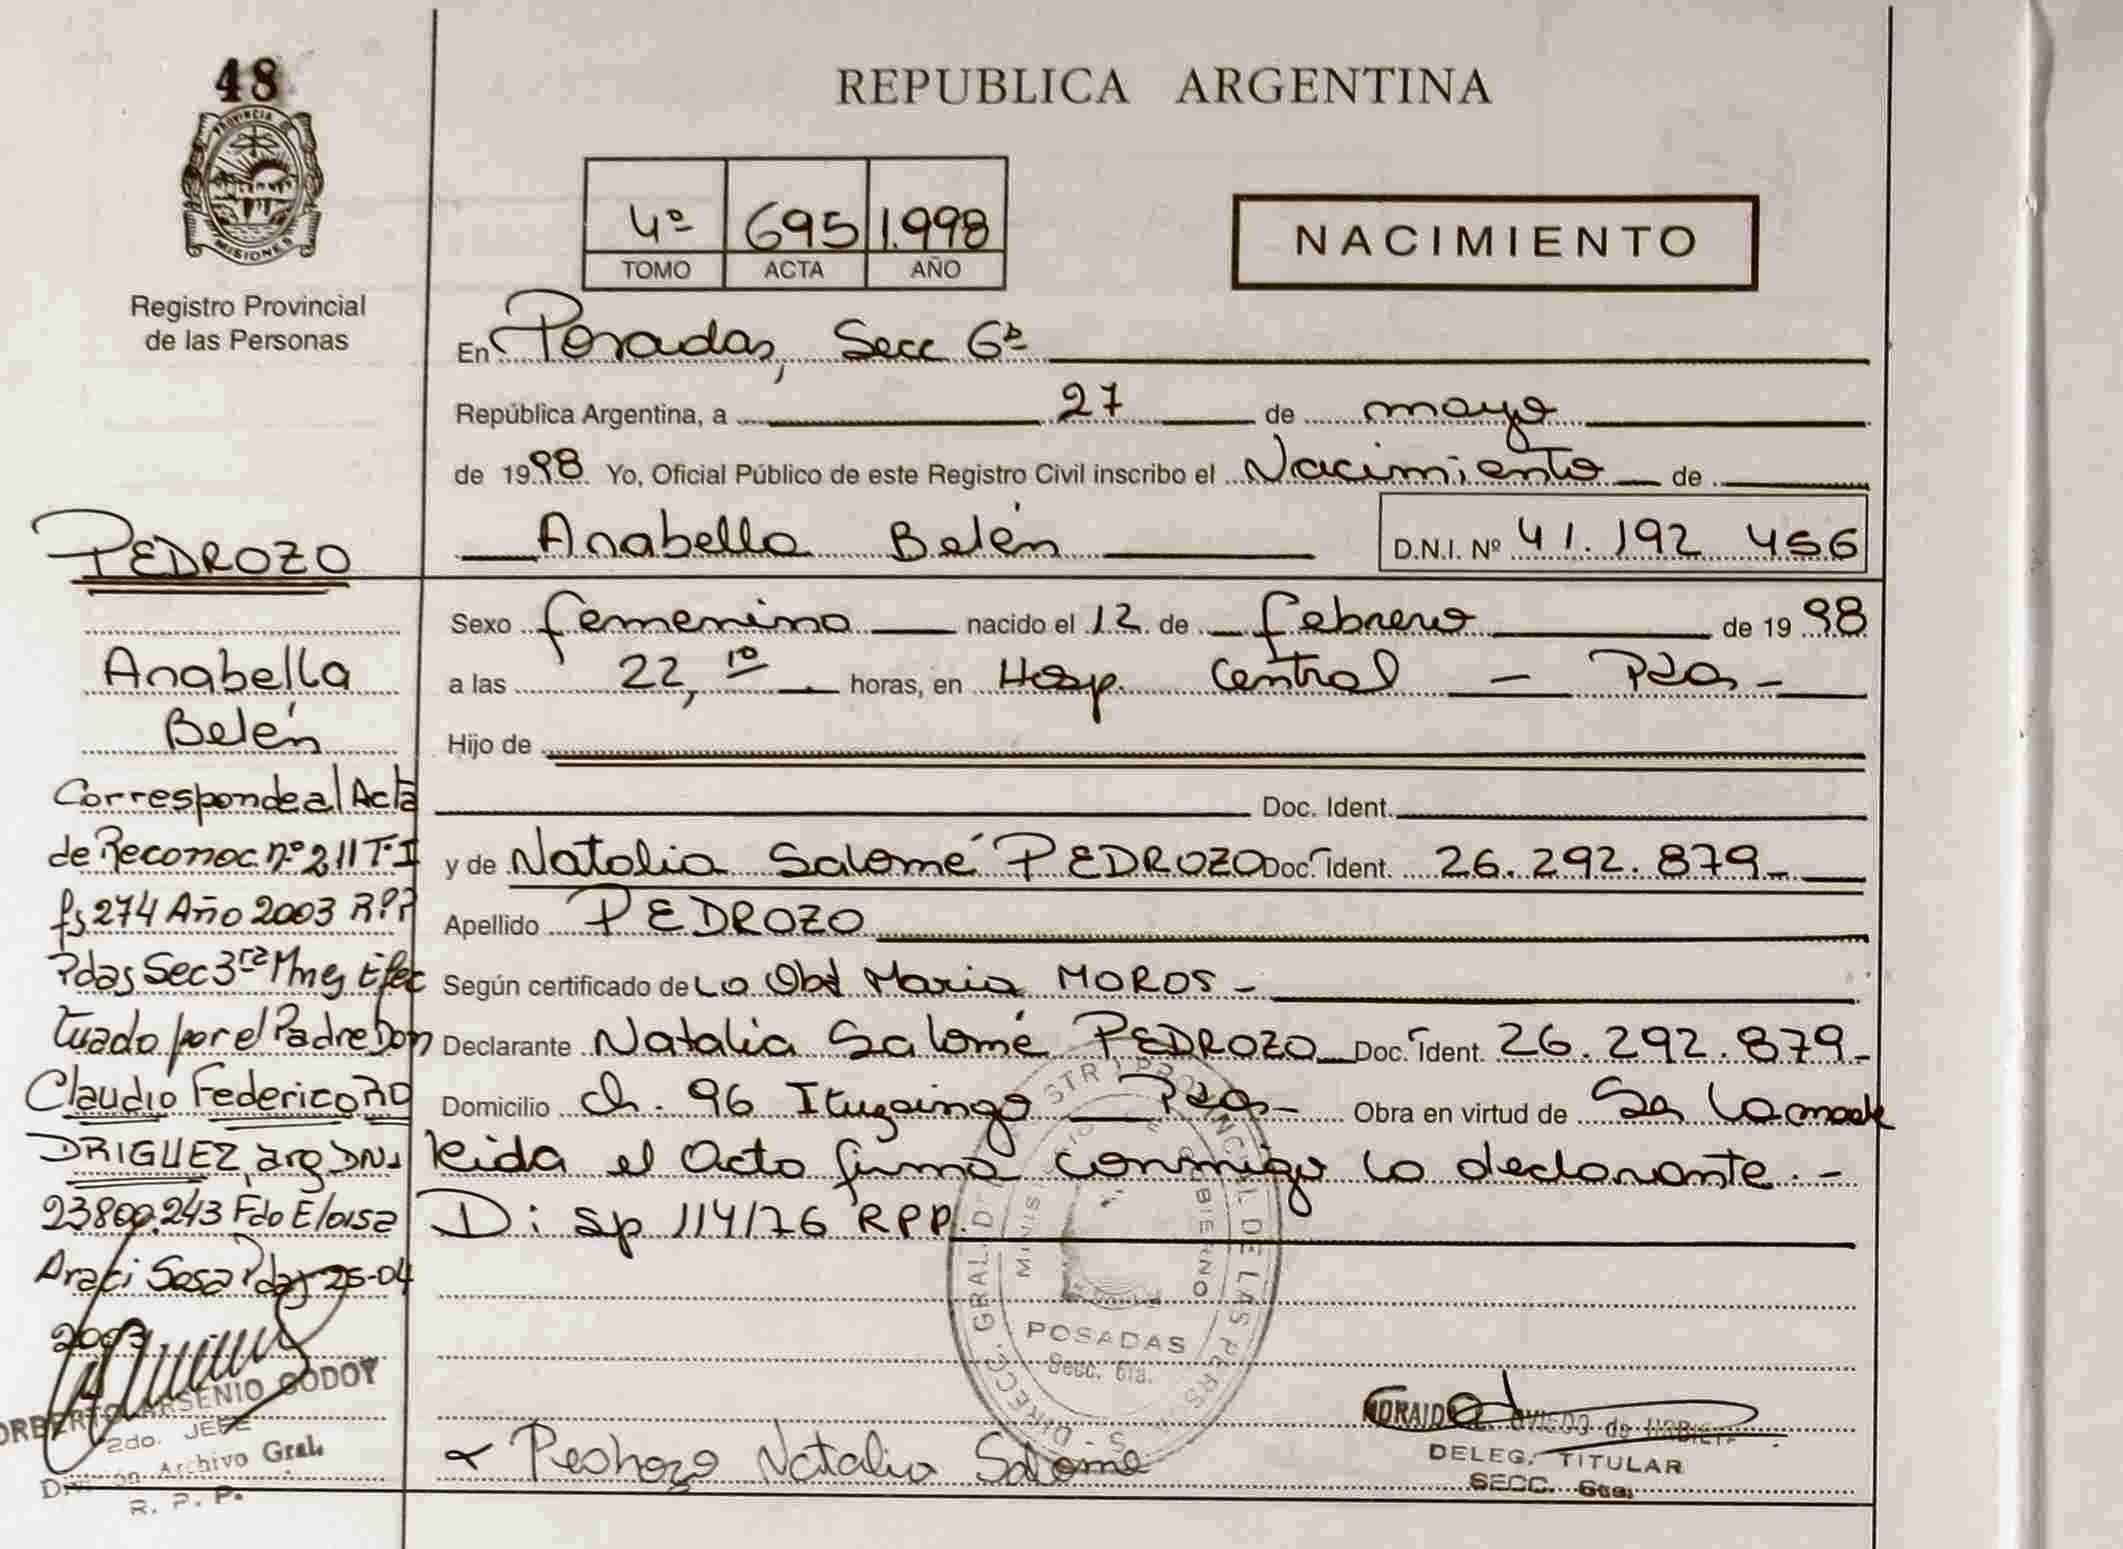 48
PROVINCIA DE
MISIONES
Registro Provincial
de las Personas
REPUBLICA ARGENTINA
4º 695 1.998
TOMO ACTA AÑO
NACIMIENTO
En Posadas, Secc 6ª
República Argentina, a 27 de mayo
de 1998 Yo, Oficial Público de este Registro Civil inscribo el Nacimiento de
Anabella Belén D.N.I. Nº 41.192 456
Sexo femenino nacido el 12 de febrero de 1998
a las 22,10 horas, en Hosp. Central - Pdas -
Hijo de
Doc. Ident.
y de Natalia Salomé PEDROZO Doc. Ident. 26.292.879-
Apellido PEDROZO
Según certificado de La Obst Maria MOROS -
Declarante Natalia Salomé PEDROZO Doc. Ident. 26.292.879-
Domicilio Ch. 96 Ituzaingo Pdas- Obra en virtud de Ser La madre
Leida el Acta firma conmigo la declarante.-
Disp 114/76 RPP.
PEDROZO
Anabella
Belén
Corresponde al Acta
de Reconoc. nº 211 T-I
fs 274 Año 2003 R.P.P
Pdas Sec 3ra Mnes Efec
tuado por el Padre Don
Claudio Federico RO
DRIGUEZ, arg DNI
23800.243 Fdo Eloisa
Araci Sosa Pdas 25-04
2003
NORBERTO ARSENIO GODOY
2do. JEFE
División Archivo Gral.
R. P. P.
DIRECC. GRAL. DE REGISTR PROVINCIAL DE LAS PERS
MINIS GOBIERNO
POSADAS
Secc. 6ta.
Pedrozo Natalia Salome
OVIEDO de
DELEG. TITULAR
SECC. 6ta.